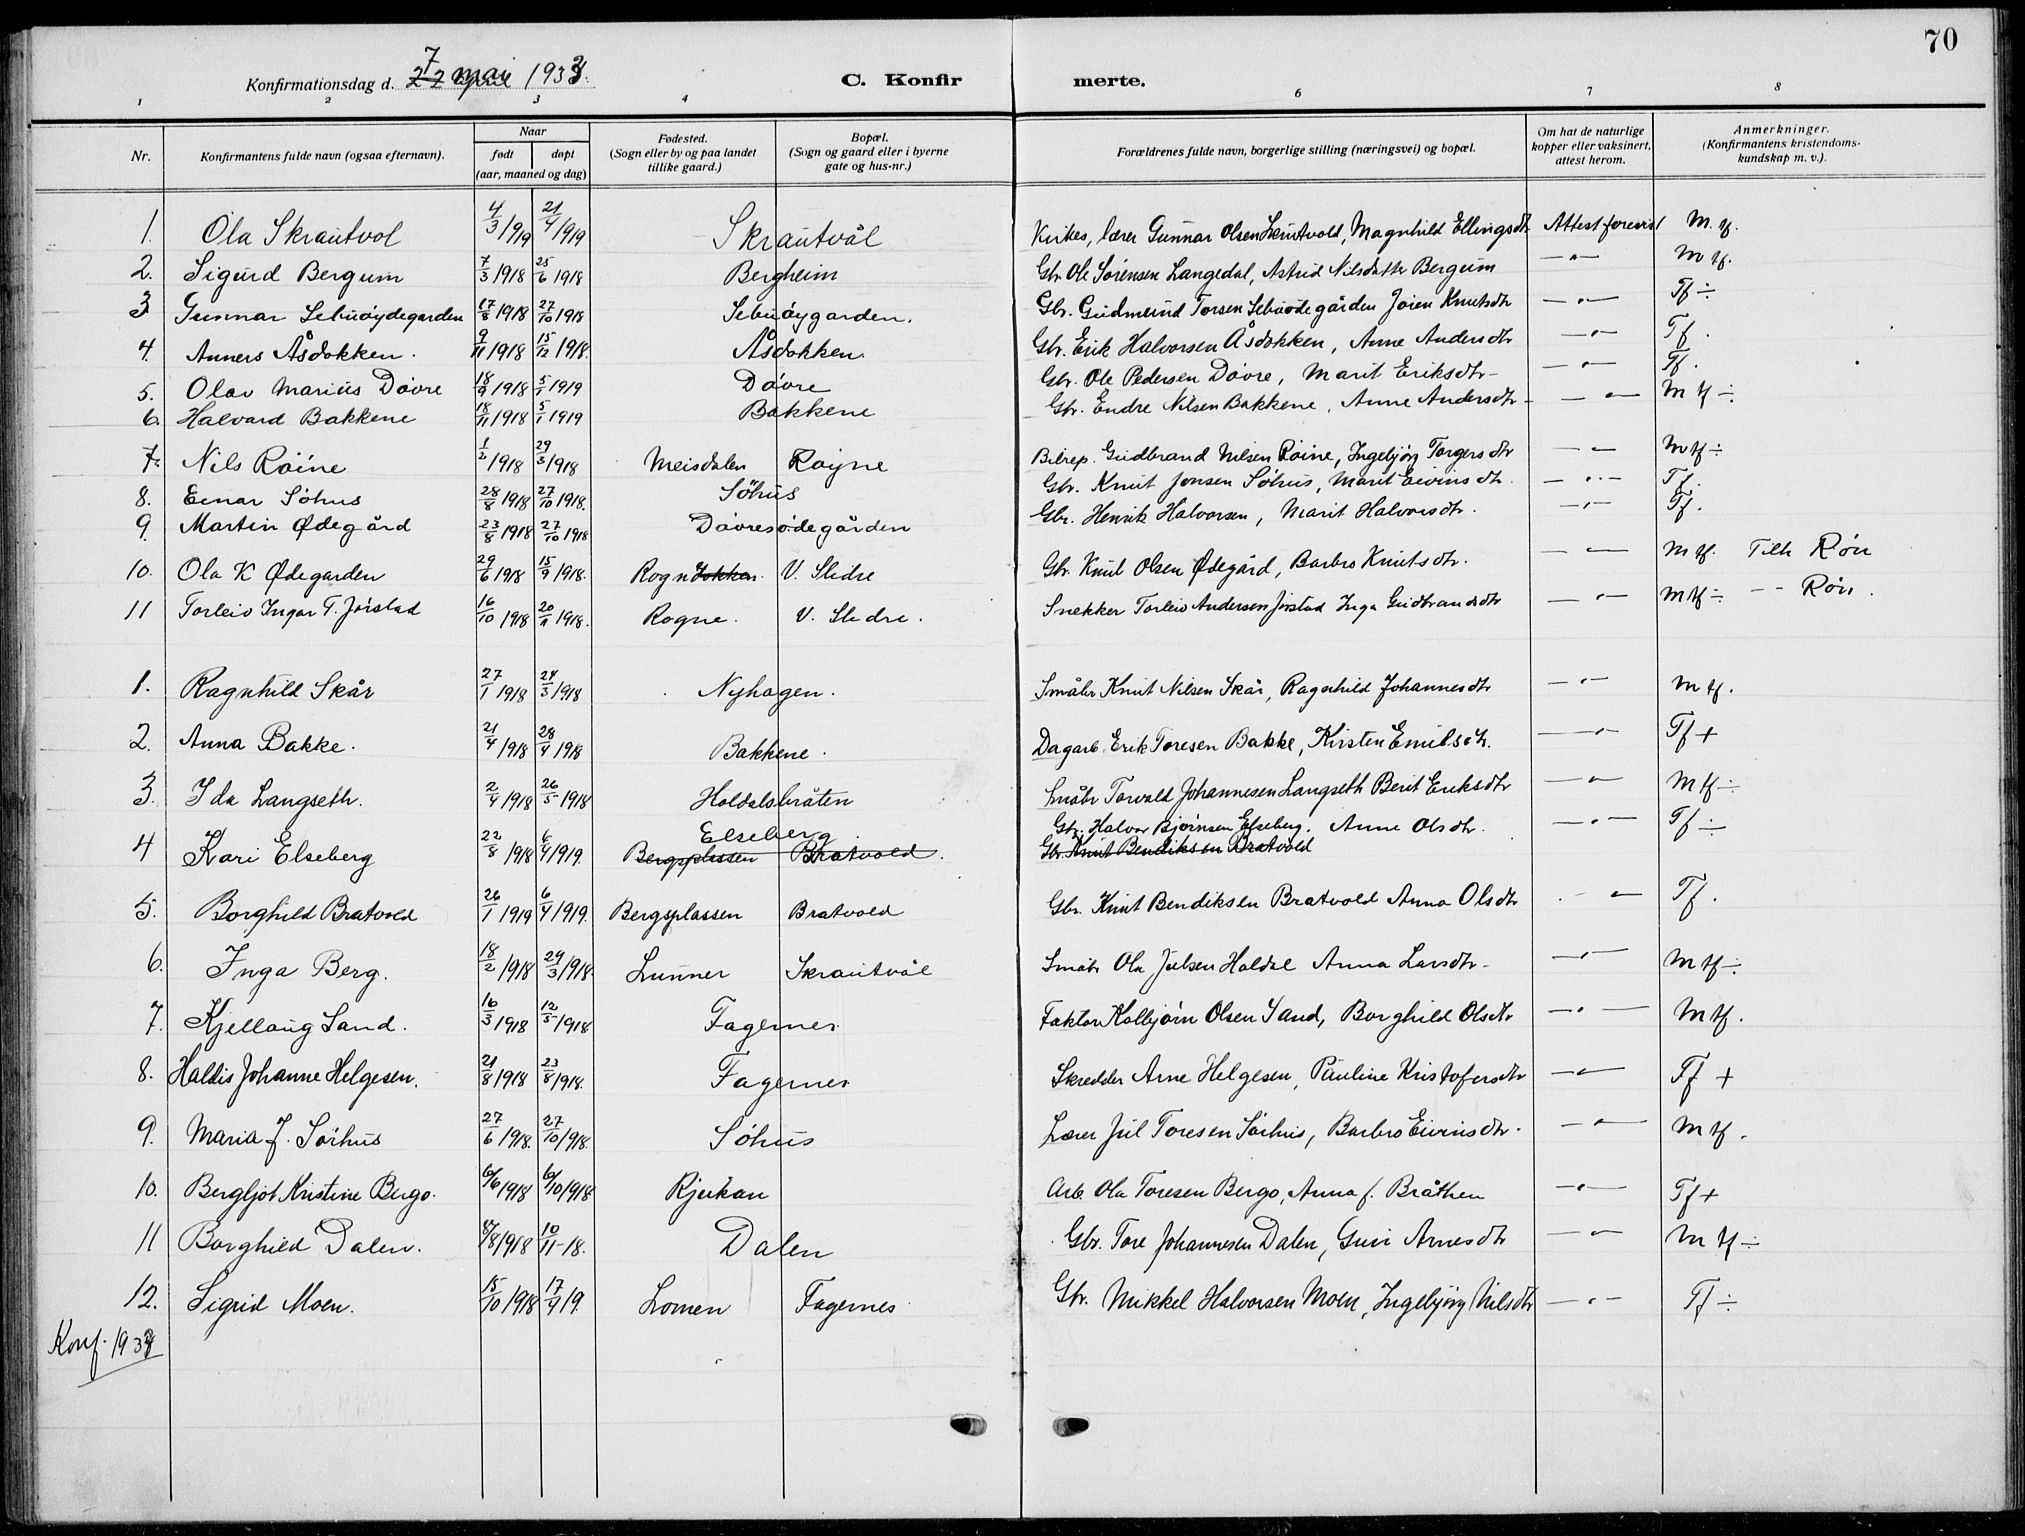 70
Konfirmationsdag d. 7 22 mai 1933. C. Konfir merte.
1 2 3 4 6 7 8
Nr. Konfirmantens fulde navn (ogsaa efternavn). Naar født døpt (aar, maaned og dag) Fødested. (Sogn eller by og paa landet tillike gaard.) Bopæl. (Sogn og gaard eller i byerne gate og hus-nr.) Forældrenes fulde navn, borgerlige stilling (næringsvei) og bopæl. Om hat de naturlige kopper eller vaksinert, attest herom. Anmerkninger. (Konfirmantens kristendoms-kundskap m. v.).
1. Ola Skrautvol 4/3/919 21/4/919 Skrautvål Kirkes, lærer Gunnar Olsen Skrutvold, Magnhild Ellingsdtr Attest forevist M. tf.
2. Sigurd Bergum 7/3 1918 25/6 1918 Bergheim Gbr Ole Sørensen Langedal, Astrid Nilsdatter Bergum — " — M tf.
3 Gunnar Sebuøydegarden 17/8 1918 27/10 1918 Sebuøygarden. Gbr. Gudmund Torsen Sebuødegården Jøien Knutsdtr — " — Tf ÷
4. Anners Åsdokken. 9/11 1918 15/12 1918. Åsdokken. Gbr. Erik Halvorsen Åsdokken, Anne Andersdtr — " — Tf.
5. Olav Marius Døvre 18/9 1918 5/1 1919 Døvre Gbr. Ole Pedersen Døvre, Marit Eriksdtr — " — Tf.
6. Halvard Bakkene 18/11 1918 5/1 1919 Bakkene Gbr. Endre Nilsen Bakkene, Anne Andersdtr — " — M tf ÷
7. Nils Røine 1/2 1918 29/3 1918 Meisdalen Røyne Bilrep. Gudbrand Nilsen Røine, Ingebjørg Torgersdtr — " — M tf ÷
8. Einar Søhus 28/8 1918 27/10 1918. Søhus Gbr. Knut Jonsen Søhus, Marit Eivinsdtr. — " — Tf.
9. Martin Ødegård 23/8 1918 27/10 1918 Døvresødegården Gbr. Henrik Halvorsen, Marit Halvorsdtr. — " — Tf.
10. Ola K Ødegarden 29/6 1918 15/9 1918. Rogn Jokken. V. Slidre Gbr. Knut Olsen Ødegård, Barbro Knutsdtr. — " — M tf. Tilh Røn
11 Torleiv Ingar T. Jørstad 16/10 1918 20/11 1918. Rogne. V. Slidre. Snekker Torleiv Andersen Jørstad Inga Gudbrandsdtr — " — M tf ÷ - - Røn.
1. Ragnhild Skår 27/1 1918 24/3 1918 Nyhagen. Småbr Knut Nilsen Skår, Ragnhild Johannesdtr — " — M tf.
2. Anna Bakke. 21/4 1918 28/4 1918 Bakkene. Dagarb. Erik Toresen Bakke, Kirsten Emilsdtr. — " — Tf +
3. Ida Langseth. 2/4 1918 26/5 1918 Holdalsbråten Småbr Torvald Johannesen Langseth Berit Eriksdtr — " — M tf ÷
4 Kari Elseberg 22/8 1918 6/4 1919. Elseberg Gbr. Halvor Bjørnsen Elseberg. Anne Olsdtr. — " — Tf ÷
Bergsplassen Bratvold. Gbr. Knut Bendiksen Bratvold
5. Borghild Bratvold 26/1 1919 6/4 1919. Bergsplassen Bratvold Gbr. Knut Bendiksen Bratvold Anna Olsdtr — " — Tf.
6. Inga Berg. 18/2 1918 29/3 1918. Lunner Skrautvål Småbr Ola Julsen Haldal Anna Larsdtr — " — M tf ÷
7. Kjellaug Sand. 16/3 1918 12/5 1918. Fagernes Faktor Kolbjørn Olsen Sand, Borghild Olsdtr — " — M tf.
8. Haldis Johanne Helgesen. 21/8 1918 23/8 1918. Fagernes Skredder Arne Helgesen, Pauline Kristofersdtr — " — Tf +
9. Maria J. Sørhus 27/6 1918. 27/10 1918. Søhus Lærer Jul Toresen Sørhus, Barbro Eivinsdtr. — " — M tf.
10. Bergljot Kristine Bergo. 6/6 1918 6/10 1918 Rjukan Arb. Ola Toresen Bergo, Anna f. Bråthen — " — Tf +
11 Borghild Dalen. /8 1918 10/11-18. Dalen Gbr. Tore Johannesen Dalen, Guri Arnesdtr — " — M tf ÷
12. Sigrid Moen. 15/10 1918 17/4 19. Lomen Fagernes Gbr. Mikkel Halvorsen Moen, Ingebjørg Nilsdtr — " — Tf ÷
Konf. 1933